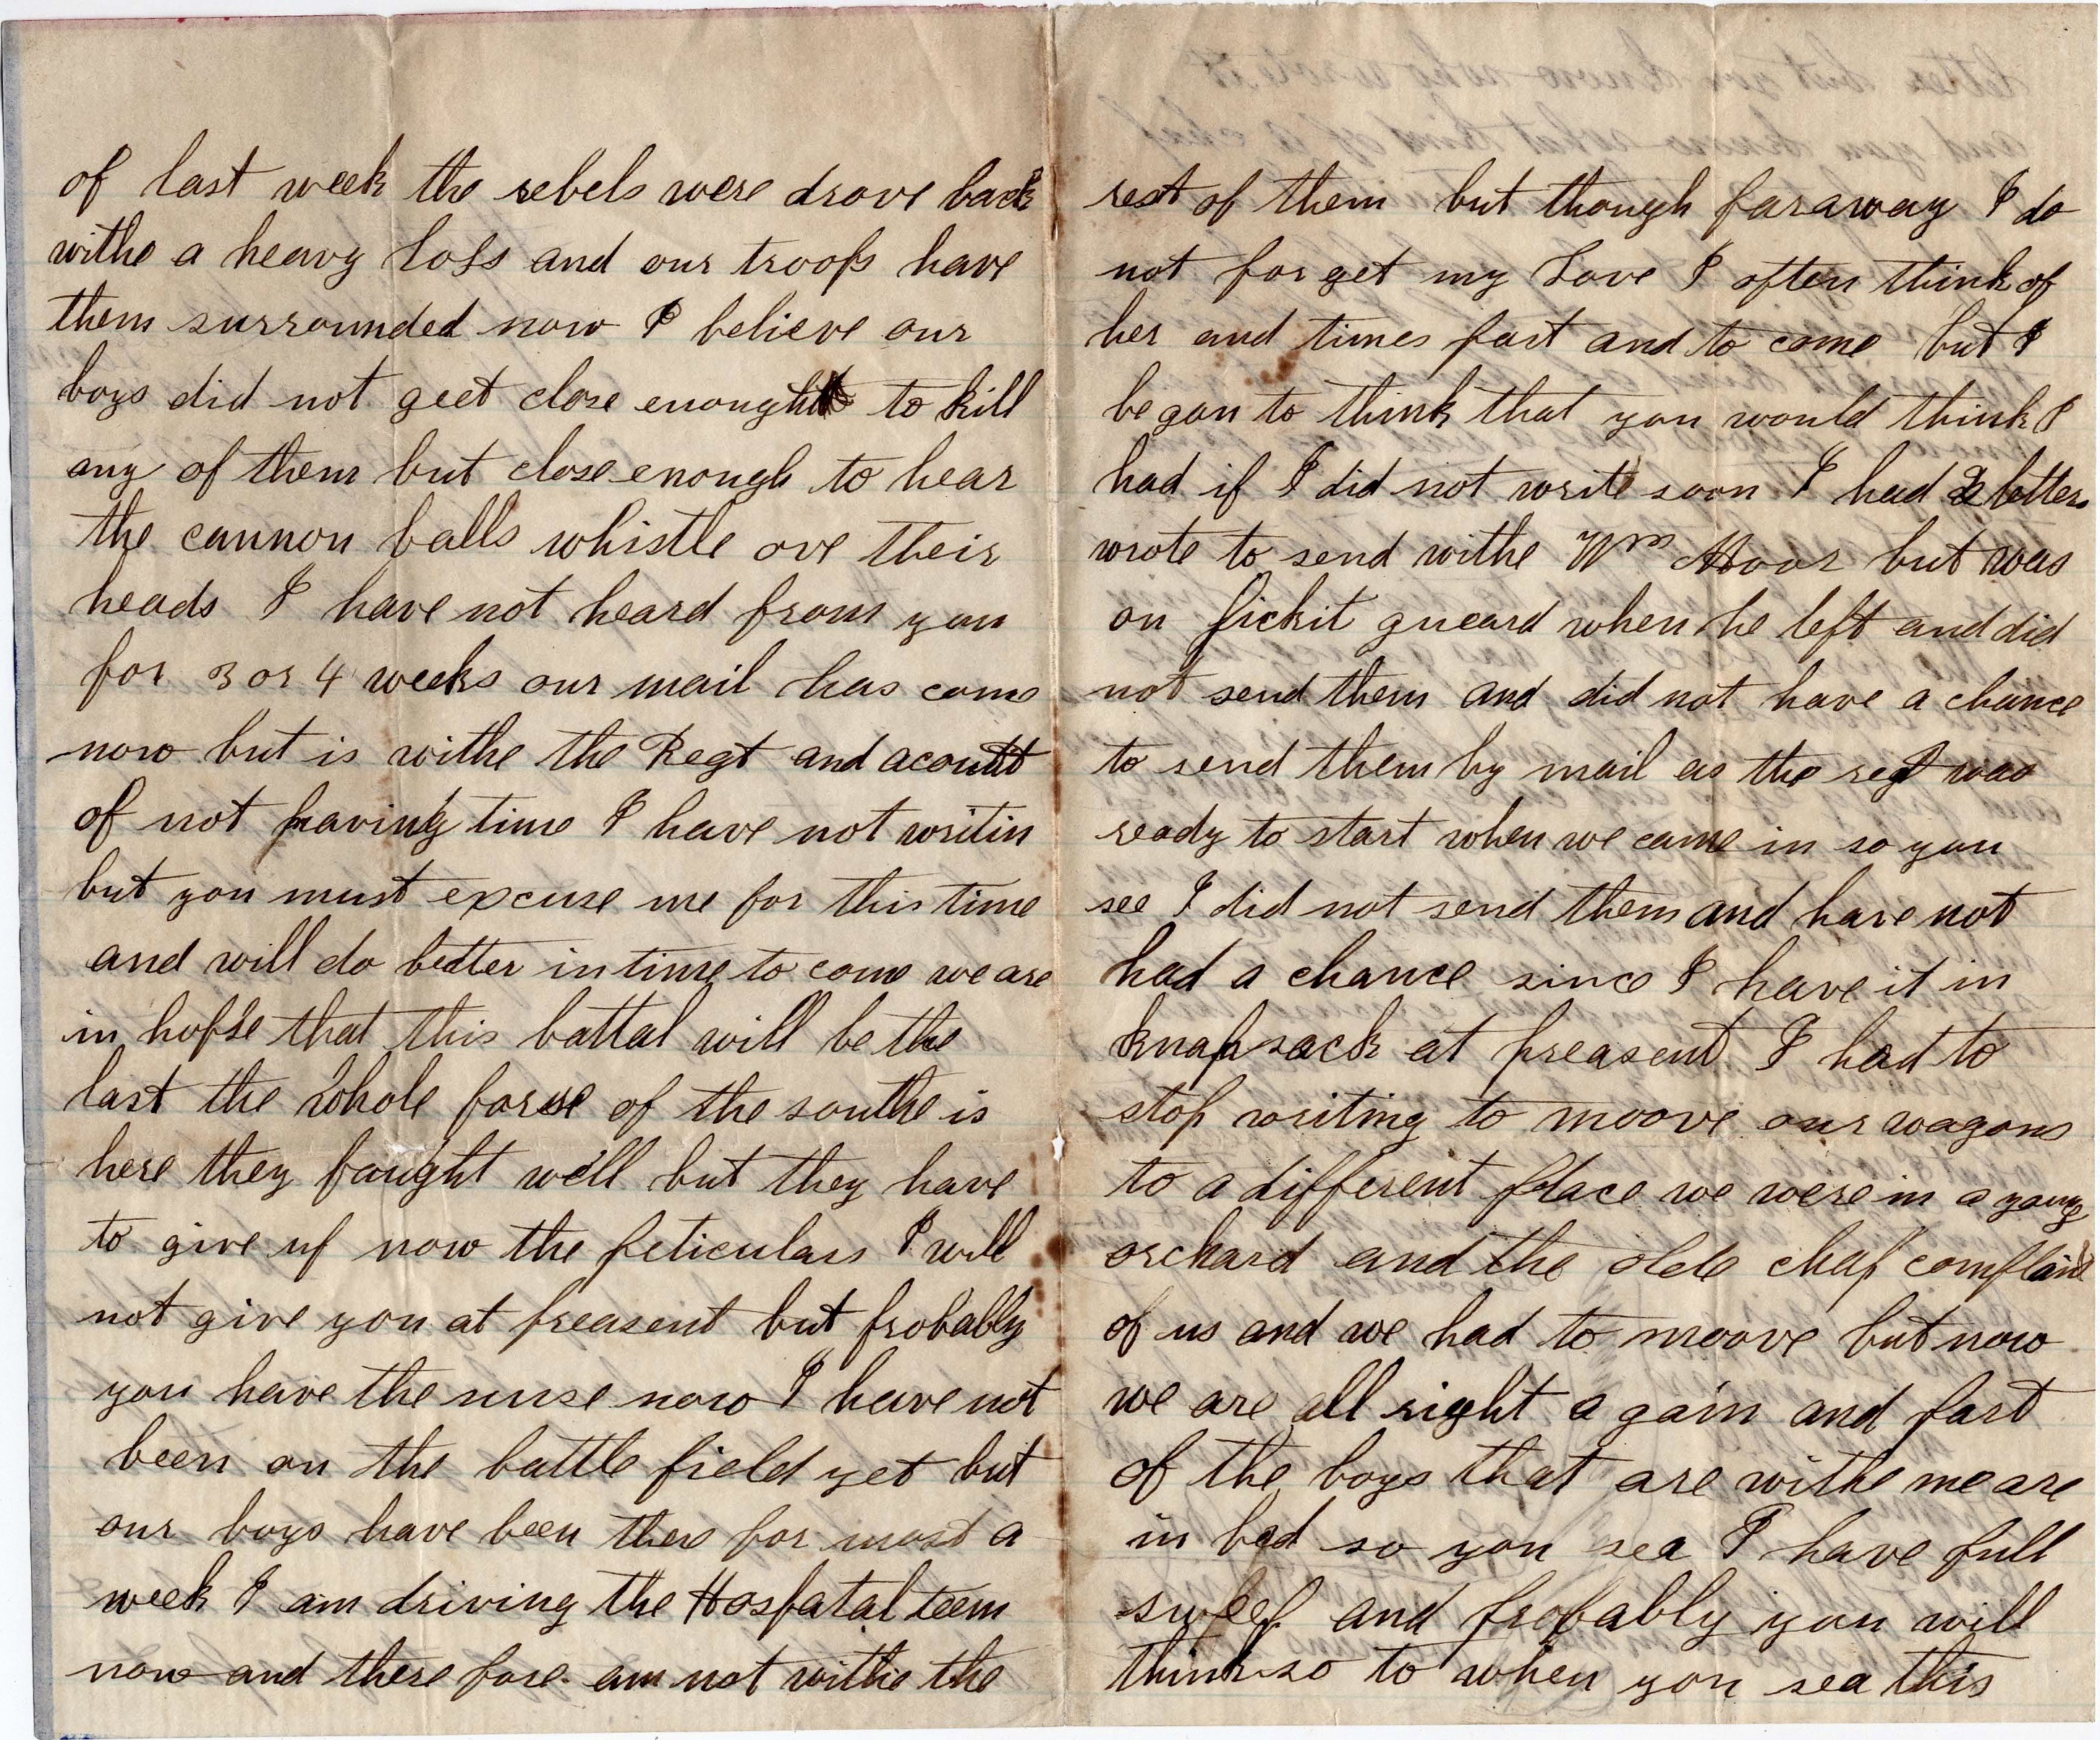 of last week the rebels were drove back
withe a heavy Loss and our troops have
them surrounded now I believe our
boys did not geet close enought to kill
any of them but close enough to hear
the cannon balls whistle ove their
heads I have not heard from you
for 3 or 4 weeks our mail has come
now but is withe the Regt and acountt
of not having time I have not writin
but you must expcuse me for this time
and will do better in time to come we are
in hopse that this battal will be the
last the whole forse of the southe is
here they faught well but they have
to give up now the peticulars I will
not give you at preasent but probably
you have the nuse now I have not
been on the battle field yet but
our boys have been there for most a
week I am driving the Hospatal teem
now and there fore am not withe the
rest of them but though faraway I do
not forget my Love I often think of
her and times past and to come but I
began to think that you would think I
had if I did not write soon I had 2 letters
wrote to send withe Wm Moor but was
on pickit gueard when he left and did
not send them and did not have a chance
to send them by mail as the regt was
ready to start when we came in so you
see I did not send them and have not
had a chance since I have it in
knapsack at preasent I had to
stop writing to moove our wagons
to a different place we were in a young
orchard and the olde chap complaind
of us and we had to moove but now
we are all right a gain and part
of the boys that are withe me are
in bed so you sea I have full
sweep and probably you will
think so to when you sea this